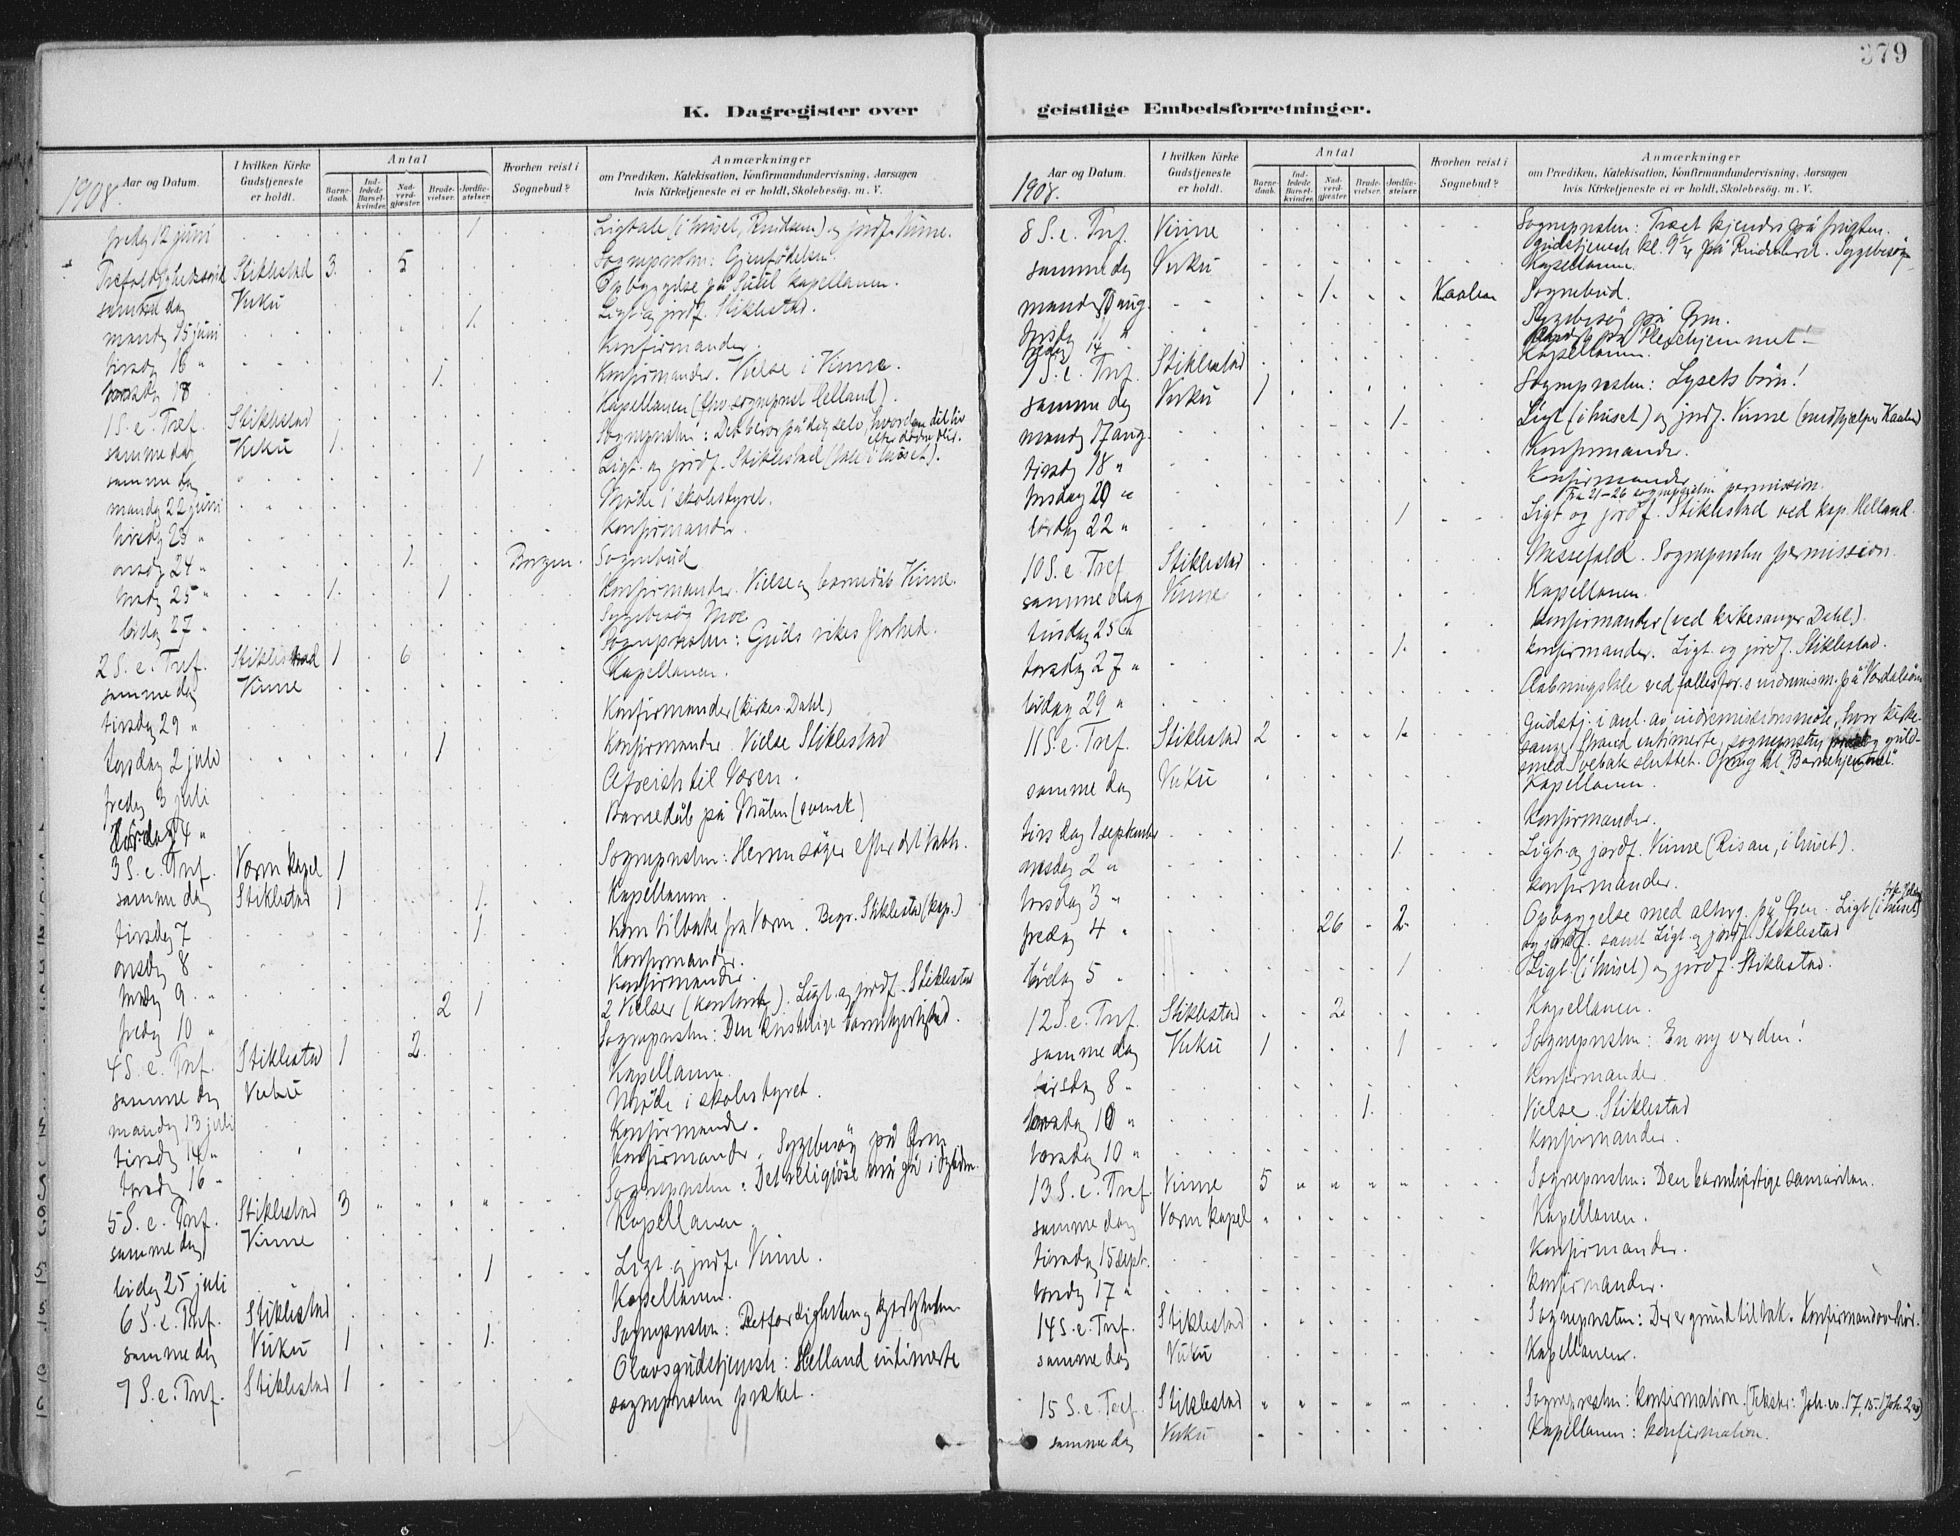 379
K. Dagregister over geistlige Embedsforretninger.
1908.
Aar og Datum.
I hvilken Kirke Gudstjeneste er holdt.
Antal
Barnedaab.
Indledede Barselkvinder.
Nadverdgjæster.
Brudevielser.
Jordfæstelser.
Hvorhen reist i Sognebud?
Anmærkninger
om Prædiken, Katekisation, Konfirmandundervisning, Aarsagen
hvis Kirketjeneste ei er holdt, Skolebesøg. m. V.
fredag 12 juni 1. Ligtale (i huset, ) og jordf. Vinne.
Stiklestad 3. 5 Sognepresten: Gjenfødelsen.
samme dag Vuku Opbyggelse på kapellanen.
mandag 15 juni 1. Ligt. og jordf. Stiklestad.
tirsdag 16 " Konfirmander.
torsdag 18 1. Konfirmander. Vielse i Vinne.
1 S. e. Tref. Stiklestad Kapellanen (fhv. sogneprest Helland).
samme dag Vuku 1. Sognepresten: Det beror på dig selv, hvordan dit liv efter døden blir.
samme dag 1 Ligt. og jordf. Stiklestad (tale i huset).
mandag 22 juni Møde i skolestyret.
tirsdag 23 " Konfirmander
onsdag 24 " 1. Borgen. Sognebud
torsdag 25 " 1. 1 Konfirmander. Vielse og barnedåb Vinne.
lørdag 27 " Sygebesøg Moe
2 S. e. Tref. Stiklestad 1 6 Sognepresten: Guds rikes
samme dag Vinne Kapellanen.
tirsdag 29 " Konfirmander (kirkes. Dahl)
torsdag 2 juli 1 Konfirmander. Vielse Stiklestad
fredag 3 juli Afreise til Væren.
lørdag 4 " Barnedåb på Målen (svensk)
3 S. e. Tref. Værn kapel 1 Sognepresten: Herren søger efter det tabte.
samme dag Stiklestad 1 1. Kapellanen.
tirsdag 7 1 Kom tilbake fra Værn. Begr. Stiklestad (kap.)
onsdag 8 " Konfirmander.
torsdag 9 " Konfirmander.
fredag 10 " 2 1 2 Vielser (kontoret). Ligt. og jordf. Stiklestad
4 S. e. Tref. Stiklestad 1 2. Sognepresten: Den kristelige barmhjertighed.
samme dag Vuku Kapellanen.
mandag 13 juli Møde i skolestyret.
tirsdag 14 " Konfirmander.
torsdag 16 " Konfirmander. Sygebesøg på Øren
5 S. e. Tref. Stiklestad 3 Sognepresten: Det religiøse må gå i dybden.
samme dag Vinne Kapellanen.
lørdag 25 juli 1 Ligt. og jordf. Vinne.
6 S. e. Tref. Stiklestad Kapellanen.
samme dag Vuku 1 1. Sognepresten: Retfærdigheten og kjærligheten
7 S. e. Tref. Stiklestad 1 Olavsgudstjeneste: Helland intimerte
sognepresten præket.
1908.
Aar og Datum.
I hvilken Kirke Gudstjeneste er holdt.
Antal
Barnedaab.
Indledede Barselkvinder.
Nadverdgjæster.
Brudevielser.
Jordfæstelser.
Hvorhen reist i Sognebud?
Anmærkninger
om Prædiken, Katekisation, Konfirmandundervisning, Aarsagen
hvis Kirketjeneste ei er holdt, Skolebesøg. m. V.
8 S. e. Tref. Vinne Sognepresten: Træet kjendes på frugten.
Gudstjeneste kl. på Sygebesøg
samme dag Vuku Kapellanen.
mandag 10 aug. 1. Kaalen Sognebud.
Sygebesøg på Øren.
fredag 14 på Pleiehjemmet
9 S. e. Tref. Stiklestad Kapellanen.
samme dag Vuku 1 Sognepresten: Lysets børn!
mandag 17 aug. 1. Ligt (i huset) og jordf. Vinne (medhjælper Kaalen)
tirsdag 18 " Konfirmander.
torsdag 20 " Konfirmander
Fra 21–26 permission.
lørdag 22 " 1 Ligt og jordf. Stiklestad ved kap. Helland.
10 S. e. Tref Stiklestad Messefald. Sognepresten permission.
samme dag Vinne Kapellanen.
tirsdag 25 " Konfirmander (ved kirkesanger Dahl).
torsdag 27 " 1. Konfirmander. Ligt. og jordf. Stiklestad.
lørdag 29 " Aabningstale ved fællesfor. indremism. på Værdalsøren
11 S. e. Tref. Stiklestad 2 1. Gudstj. i anl. av indremissionsmøte, hvor kirke-
sanger Strand intimerte, sognepresten og guld-
smed Svebak sluttet. Ofring til "Barnehjemmet".
samme dag Vuku Kapellanen.
tirsdag 1 september Konfirmander.
onsdag 2 " 1. Ligt. og jordf. Vinne (Risan, i huset).
torsdag 3 " Konfirmander.
fredag 4 " 26 2. Opbyggelse med altrg. på Øren. Ligt (i huset)
og jordf. samt Ligt. og jordf. Stiklestad
lørdag 5 " 1 Ligt (i huset) og jordf. Stiklestad.
12 S. e. Tref. Stiklestad 2 Kapellanen.
samme dag Vuku 1 1 Sognepresten: En ny verden!
tirsdag 8 " Konfirmander.
torsdag 10 " 1. Vielse Stiklestad
torsdag 10 " Konfirmander.
13 S. e. Tref Vinne 5 Sognepresten: Den barmhjertige samaritan.
samme dag Værn kapel Kapellanen.
tirsdag 15 sept. Konfirmander.
torsdag 17 " Konfirmander.
14 S. e. Tref. Stiklestad Sognepresten: Der er grund til tak. Konfirmandoverhør.
samme dag Vuku Kapellanen.
15 S. e. Tref. Stiklestad Sognepresten: Konfirmation. (Tekster: Joh. ev. 17,15. 1 Joh. 2 )
samme dag Vuku Kapellanen: konfirmation.